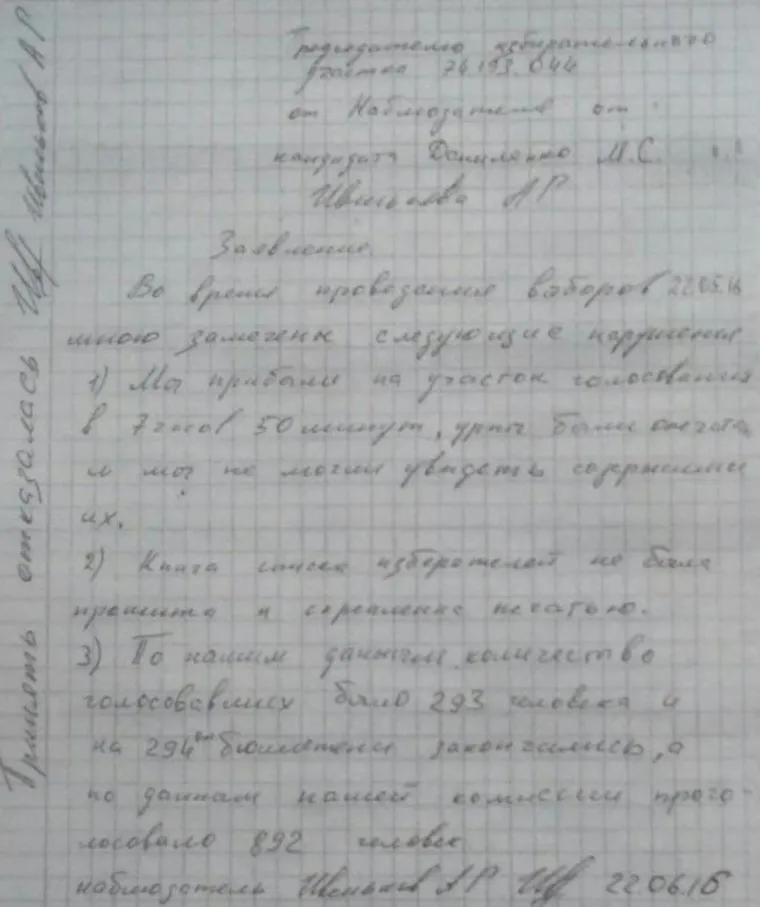 Председателю избирательного
участка 74 193.044
от Наблюдателя от
кандидата Даниленко М.С.
А Р
Заявление.
Во время проведения выборов 22.05.16
мною замечены следующие нарушения
1) Мы прибыли на участок голосования
в 7 часов 50 минут, урны были опечата
и мы не могли увидеть содержимое
их.
2) Книга списка избирателей не была
прошита и скреплена печатью.
3) По нашим данным количество
голосовавших было 293 человека и
на 294ом бюллетени закончились, а
по данным нашей комиссии прого-
лосовало 892 человек
наблюдатель А Р 22.06.16
Принять отказалась А Р